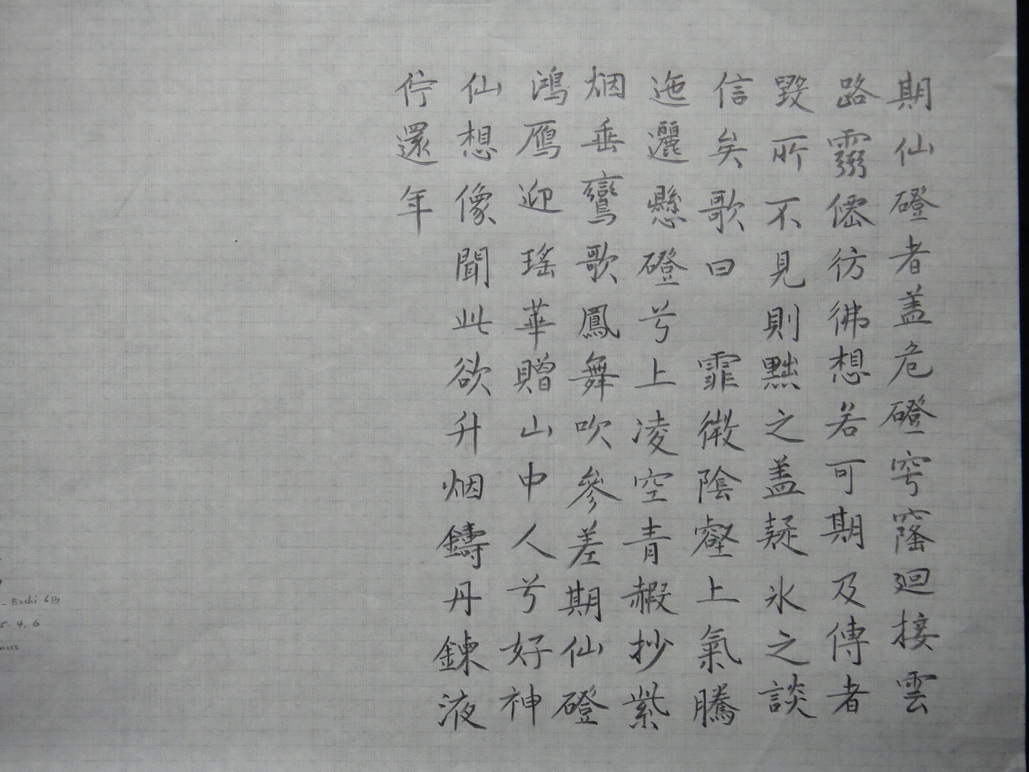 期仙磴者盖危磴穹窿迴接雲
路僊彷彿想若可期及傳者
毀所不見則黜之盖疑氷之談
信矣歌曰 霏微陰壑上氣騰
迤邐懸磴兮上凌空青赮抄紫
烟垂鸞歌鳳舞吹參差期仙磴
鴻鴈迎瑤華贈山中人兮好神
仙想像聞此欲升烟鑄丹鍊液
佇還年
6B
5. 4. 6